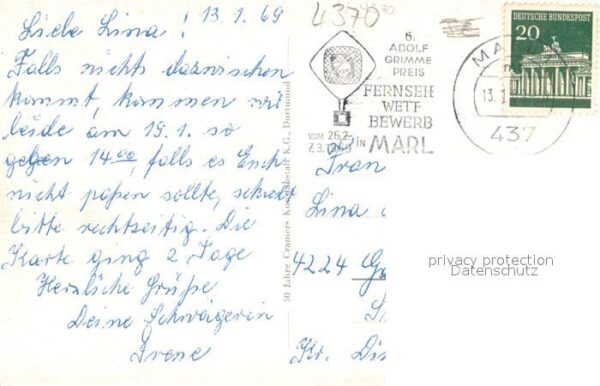 13.1.69
Liebe Lina!
Falls nichts dazwischen
kommt, kommen wir
beide am 19.1. so
gegen 14.00, falls es Euch
nicht paßen sollte, schreibt
bitte rechtzeitig. Die
Karte ging 2 Tage
Herzliche Grüße
Deine Schwägerin
Irene
50 Jahre Cramers Kunstanstalt K.G., Dortmund
4370
6.
ADOLF
GRIMME
PREIS
FERNSEH
WETT
BEWERB
in MARL
VOM 26.2.
DEUTSCHE BUNDESPOST
20
MA
13.1
437
Frau
Lina
4224
Kr. Din
privacy protection
Datenschutz